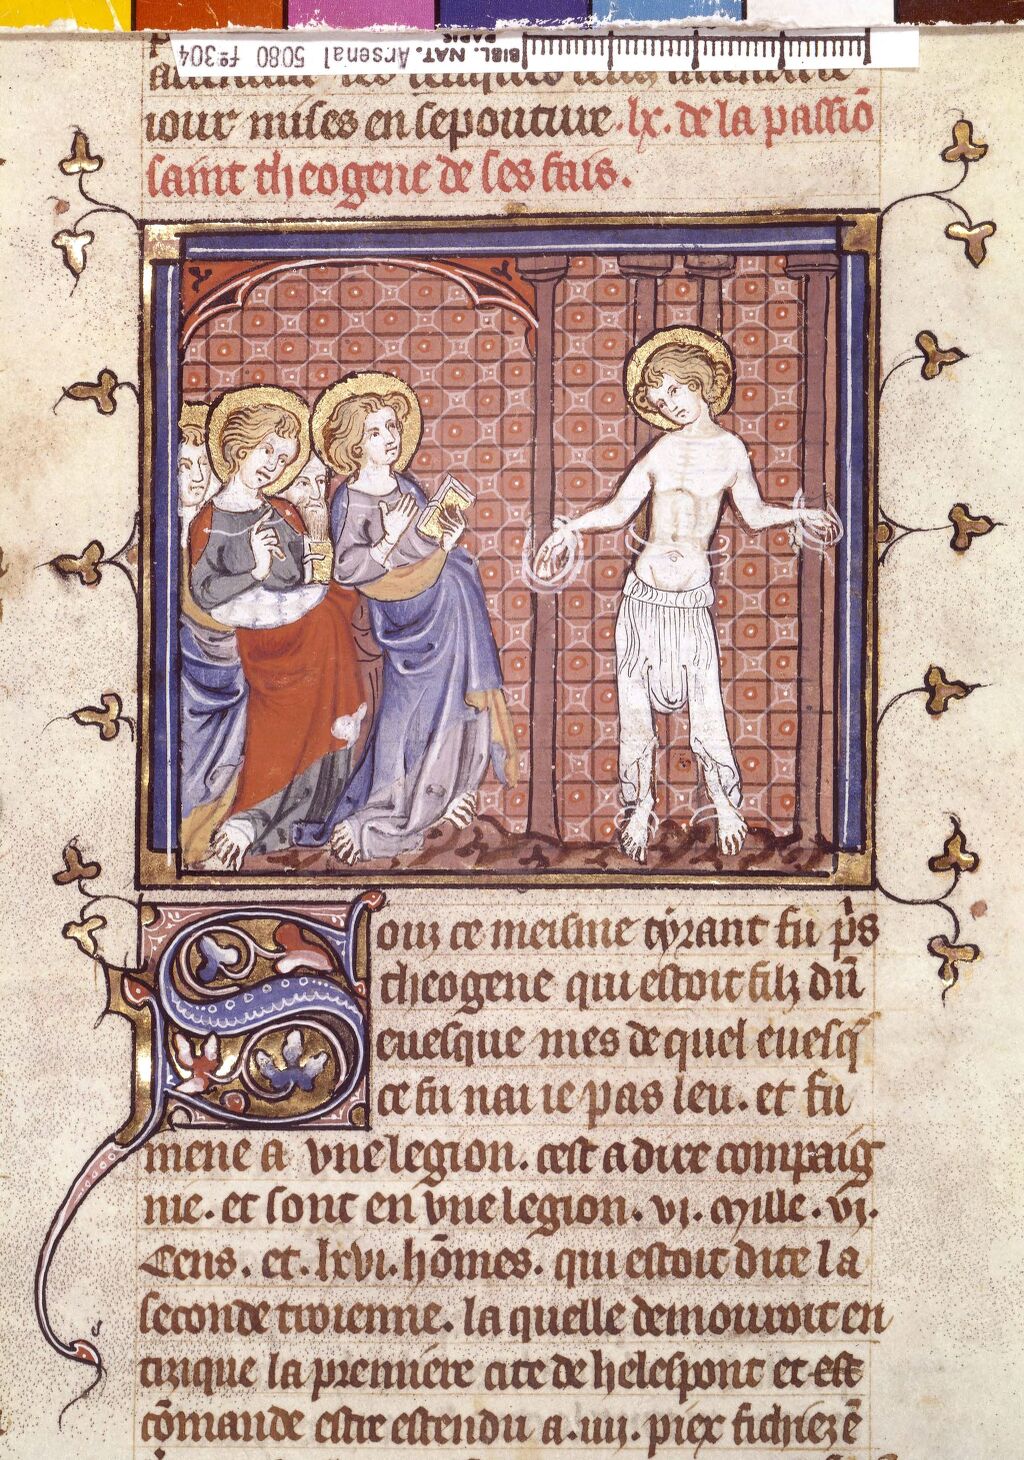 BIBL. NAT. Arsenal 5080 fº304
PARIS
iour mises en sepouture. lx. de la passiō
saint theogene de ses fais.
Souz ce meisme tyrant fu p̄s
theogene qui estoit filz dū
euesque mes de quel euesq̄
ce fu nai ie pas leu. et fu
mene a vne legion. cest a dire compaig
nie. et sont en vne legion. vi. mille. vi.
Cens. et. lxvi. hōmes. qui estoit dite la
seconde troienne. la quelle demouroit en
tizique la premiere cite de helespont et est
cōmande estre estendu a .iiii. piex fichiez ē